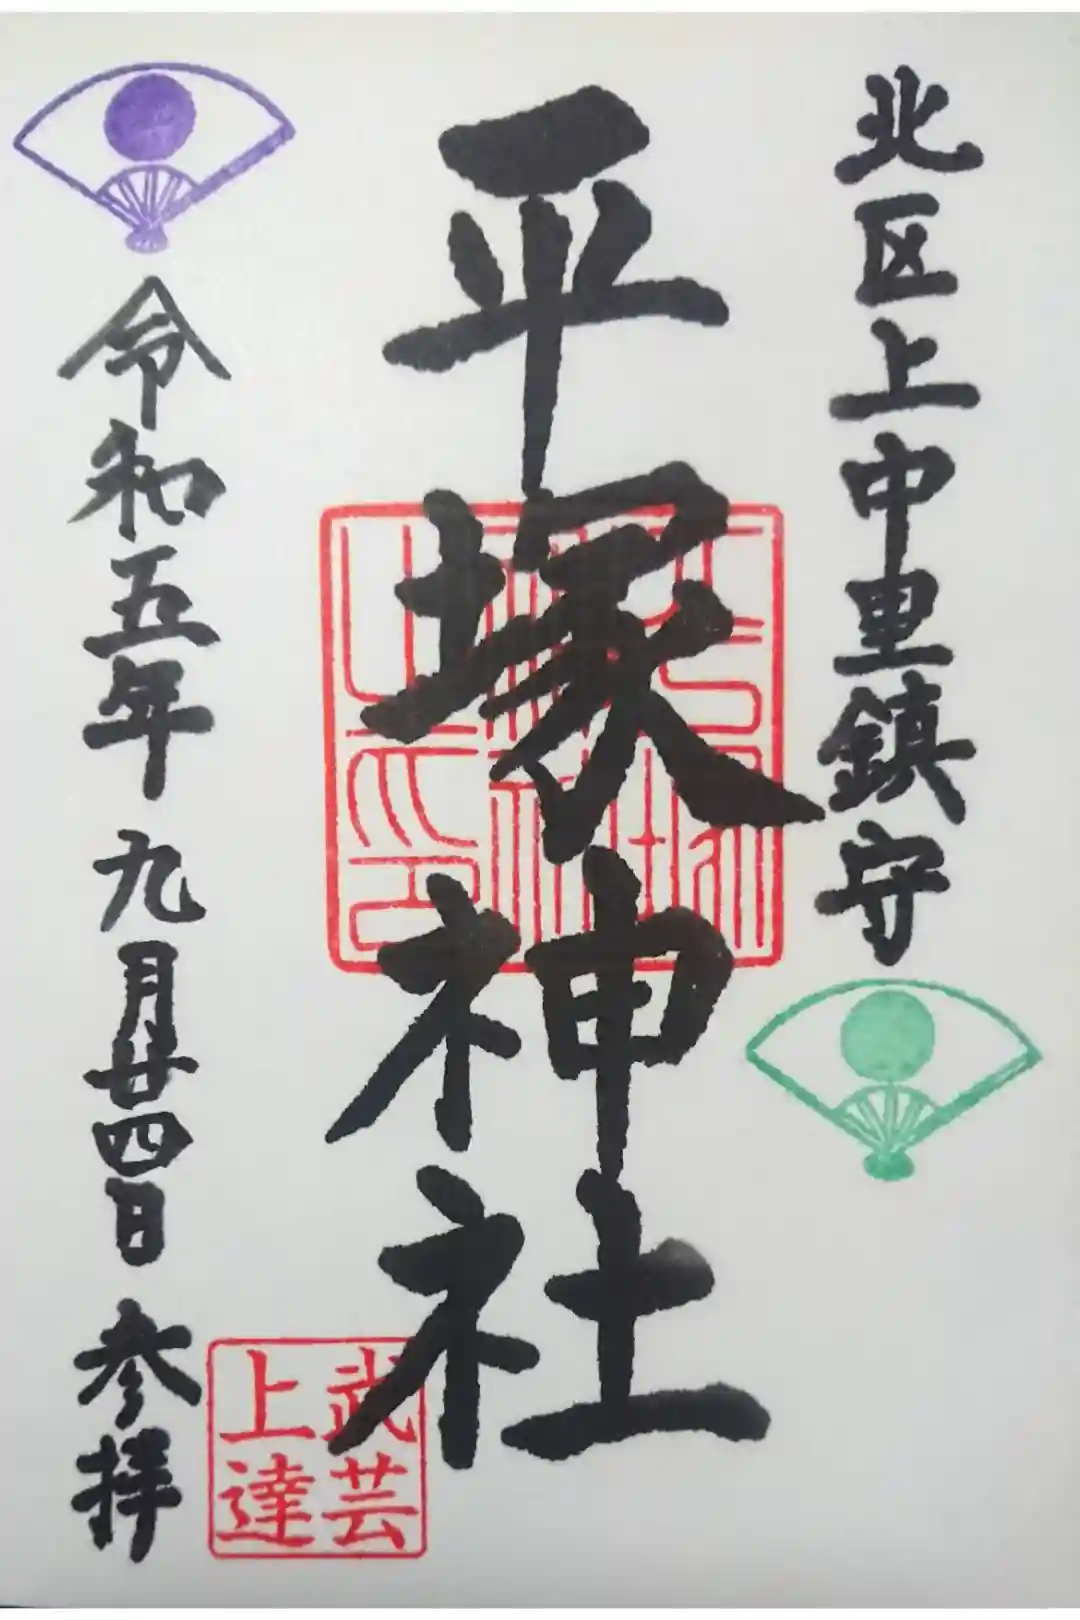 北区上中里鎮守
平塚神社
武芸
上達
令和五年 九月廿四日 参拝